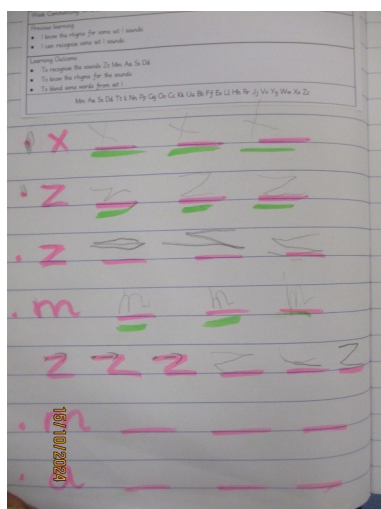 Week Commencing
Previous learning
I know the rhyme for some set 1 sounds
I can recognise some set 1 sounds
Learning Outcome
To recognise the sounds Zz Mm Aa Ss Dd
To know the rhyme for the sounds
To blend some words from set 1
Mm Aa Ss Dd Tt Ii Nn Pp Gg Oo Cc Kk Uu Bb Ff Ee Ll Hh Rr Jj Vv Yy Ww Xx Zz
x x x x
z z z z
z z
m m m m
z z z z z z
m
a
15/10/2024